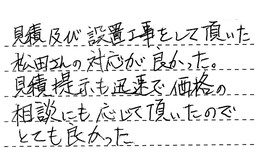 見積及び設置工事をして頂いた
松田さんの対応が良かった。
見積提示も迅速で価格の
相談にも応じて頂いたので
とても良かった